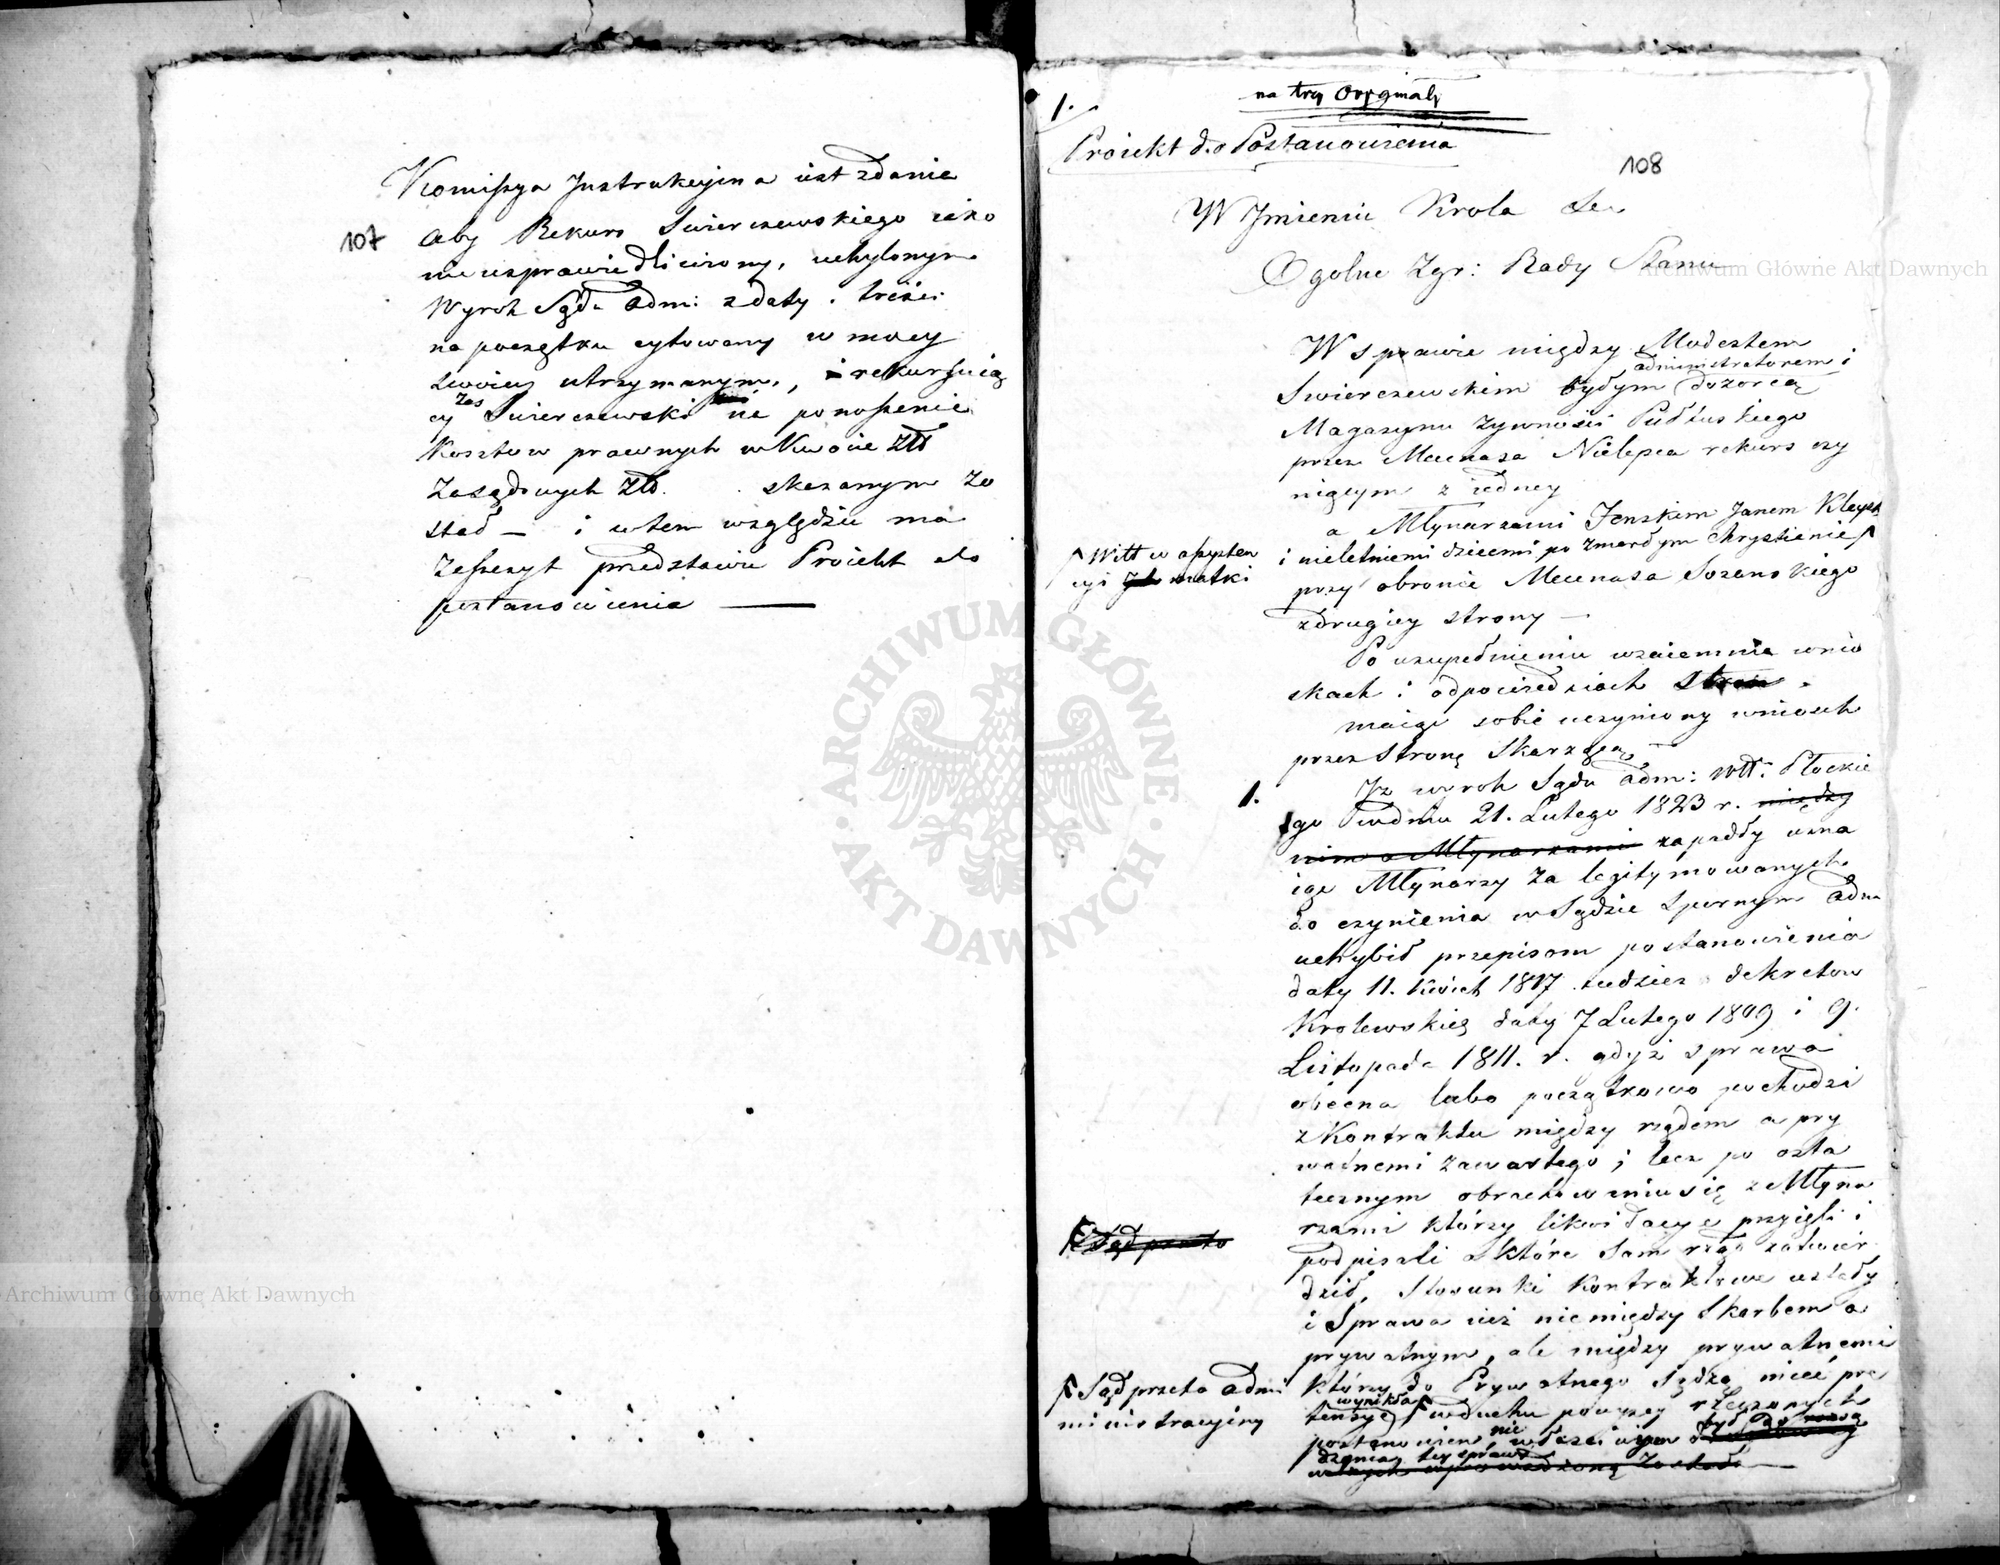 Komissya Instrukcyina iest zdania
107
aby Rekurs Swierczewskiego iako
nieusprawiedliwiony, uchylonym
Wyrok Sądu adm: z daty i treści
na początku cytowany w mocy
swoiey utrzymanym, i rekursuią
cy zas Swierczewski na ponoszenie
Kosztow prawnych w Kwocie Złł
Zasądzonych Złł. skazanym zo
stał — i w tem względzie ma
Zaszczyt przedstawić Proiekt do
postanowienia —
na trzy Oryginały
1.
Proiekt do Postanowienia
108
W Imieniu Krola &c.
Ogolne Zgr: Rady Stanu
W sprawie między Modestem
administratorem i
Swierczewskim byłym dozorcą
Magazynu żywności Pułtuskiego
przez Mecenasa Nielepca rekurs czy
niącym z iedney
a Młynarzami Jenskim Janem Kleyst
i nieletniemi dziecmi po zmarłym Chrystienie
Witt w assysten
cyi matki
przy obronie Mecenasa Sozanskiego
z drugiey strony —
Po uzupełnieniu wzaiemnie wnio
skach i odpowiedziach stron
maiąc sobie uczyniony wniosek
przez Stronę Skarzącą —
1.
Iz wyrok Sądu adm: Wtt: Płockie
go w dniu 21. Lutego 1823 r. między
nim a Młynarzami zapadły uzna
iąc Młynarzy za legitymowanych
do czynienia w Sądzie Spornym adm
uchybił przepisom postanowienia
daty 11. Kwiet 1817 tudziez dekretow
Krolewskich daty 7 Lutego 1809 i 9.
Listopada 1811. r. gdyż sprawa
obecna lubo początkowo pochodzi
z Kontraktu między rządem a pry
watnemi zawartego; lecz po osta
tecznym obrachowaniu się z Młyna
rzami którzy likwidacyę przyięli i
podpisali a które Sam rząd zatwier
dził, Stosunki kontraktowe ustały
i Sprawa iuż nie między Skarbem a
prywatnym, ale między prywatnemi
Sąd przeto
którzy do Prywatnego Sądza mieć pre
Sąd przeto admi
ministracyiny
wynikła
tensye w duchu powyzey rzeczonych
postanowien nie właściwym był do rozsą
dzenia tey sprawy
wprowadzoną została —